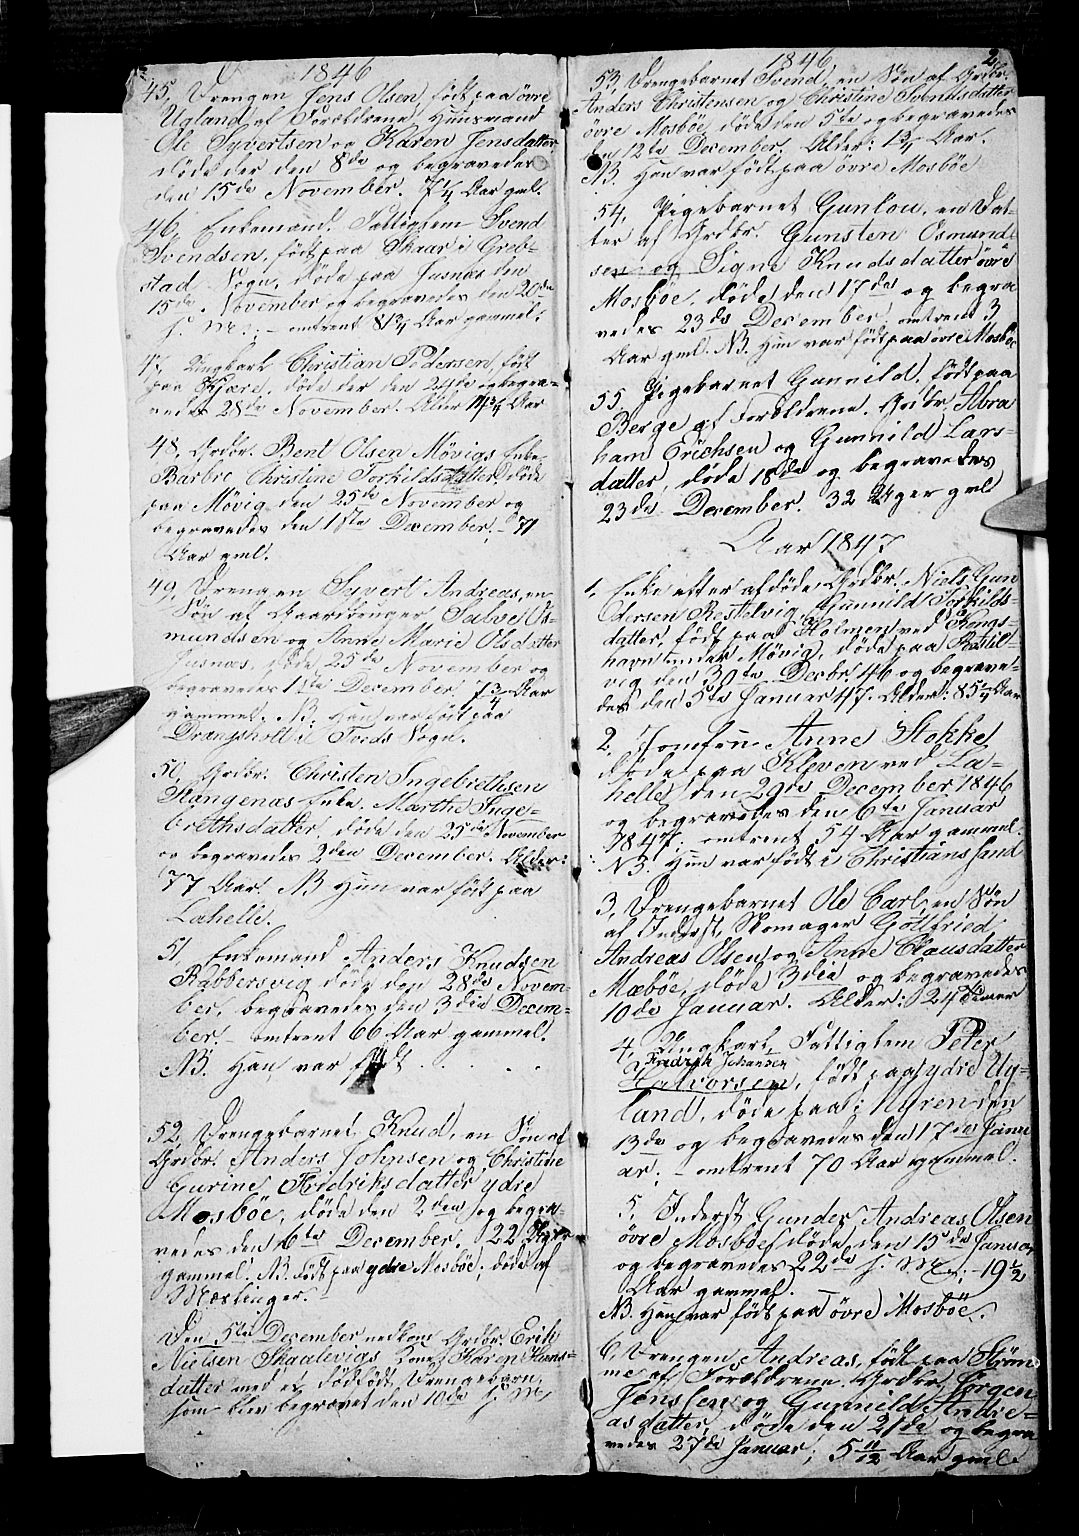 1846
45, Drengen Jens Olsen, født paa øvre
Ugland af Forældrene Huusmand
Ole Syvertsen og Karen Jensdatter
døde der den 8de og begravedes
den 15de November. 7¼ Aar gml.
46, Enkemand. Fattiglem Svend
Svendsen, født paa Skaar i Greb-
stad Sogn, døde paa Jusnæs den
15de November og begravedes den 20de
s. M.; - omtrent 81¾ Aar gammel.
47, Ungkarl Christian Pedersen, født
paa Kjære, døde der den 24de og begra-
vedes 28de November. Alder Aar
48, Grdbr. Bent Olsen Møvigs Enke
Barbro Christine Torkildsdatter, døde
paa Møvig den 25de November og
begravedes den 1ste December, - 71
Aar gml.
49, Drengen Syvert Andreas, en
Søn af Gaardbruger Salve Os-
mundsen og Anne Marie Olsdatter
Jusnæs, døde 25de November og
begravedes 1ste December, Aar
gammel. NB. Han var født paa
Drangsholt i Tveds Sogn.
50, Grdbr. Christen Ingebrethsen
Stangenæs Enke, Marthe Inge-
brethsdatter, døde den 25de November
og begravedes 2den December. Alder:
77 Aar. NB Hun var født paa
Lahelle.
51, Enkemand Anders Knudsen
Rabbersvig døde den 28de Novem-
ber, begravedes den 3die Decem-
ber. - omtrent 66 Aar gammel.
NB. Han var født . . . . .
52, Drengebarnet Knud, en Søn af
Grdbr. Anders Johnsen og Christine
Gurine Fredriksdatter ydre
Mosbøe, døde den 2den og begra-
vedes den 6te December. 22 Uger
gammel. NB. Født paa ydre Mosbøe; døde af
Mæslinger.
Den 5te December nedkom Grdbr. Erik
Nielsen Skaalevigs Kone, Karen Hans-
datter med et dødfødt Drengebarn,
som blev begravet den 10de s. M.
1846
2
53, Drengebarnet Svend, en Søn af Grdbr.
Anders Christensen og Christine Svendsdatter
øvre Mosbøe, døde den 5te og begravedes
den 12te December. Alder: Aar.
NB. Han var født paa øvre Mosbøe
54, Pigebarnet Gunlou, en Dat-
ter af Grdbr. Gunsten Osmund-
sen og Signe Knudsdatter øvre
Mosbøe, døde den 17de og begra
vedes 23de December, omtrent 3
Aar gml. NB. Hun var født paa øvre Mosbøe
55, Pigebarnet Gunnild, født paa
Berge af Forældrene, Grdbr. Abra
ham Erichsen og Gunnild Lars-
datter, døde 18de og begravedes
23de December. 32 Uger gml
Aar 1847
1, Enke efter afdøde Grdbr. Niels Gun
dersen Restelvig, Gunnild Torkilds-
datter, født paa Holmen ved Kongs-
havn under Møvig, døde paa Restel-
vig den 30te Decbr. 46 og begrave-
des den 5te Januar 47. Alder: 85¼ Aar
2, Jomfru Anne Stokke
døde paa Kleven ved La-
helle den 29de December 1846
og begravedes den 6te Januar
1847, omtrent 54 Aar gammel.
NB. Hun var født i Christianssand
3, Drengebarnet Ole Carl, en Søn
af Inderst, Skomager Gottfried
Andreas Olsen og Anne Clausdatter
Mæbøe, døde 3die og begravedes
10de Januar. Alder: 24 Timer
4, Ungkarl, Fattiglem Peter
Fredrich Johansen
Halvorsen, født paa ydre Ug-
land, døde paa Myren den
13de og begravedes den 17de Janu
ar; omtrent 70 Aar gammel.
5, Inderst Gunder Andreas Olsen
øvre Mosbøe, døde den 15de Januar
og begravedes 22de s. M.; - 19½
Aar gammel.
NB. Han var født paa øvre Mosbøe.
6, Drengen Andreas, født paa Strøm-
me af Forældrene, Grdbr. Jørgen
Jenssen og Gunnild Andre-
asdatter, døde den 21de og begra
vedes 27de Januar, 5 11/12 Aar gml.